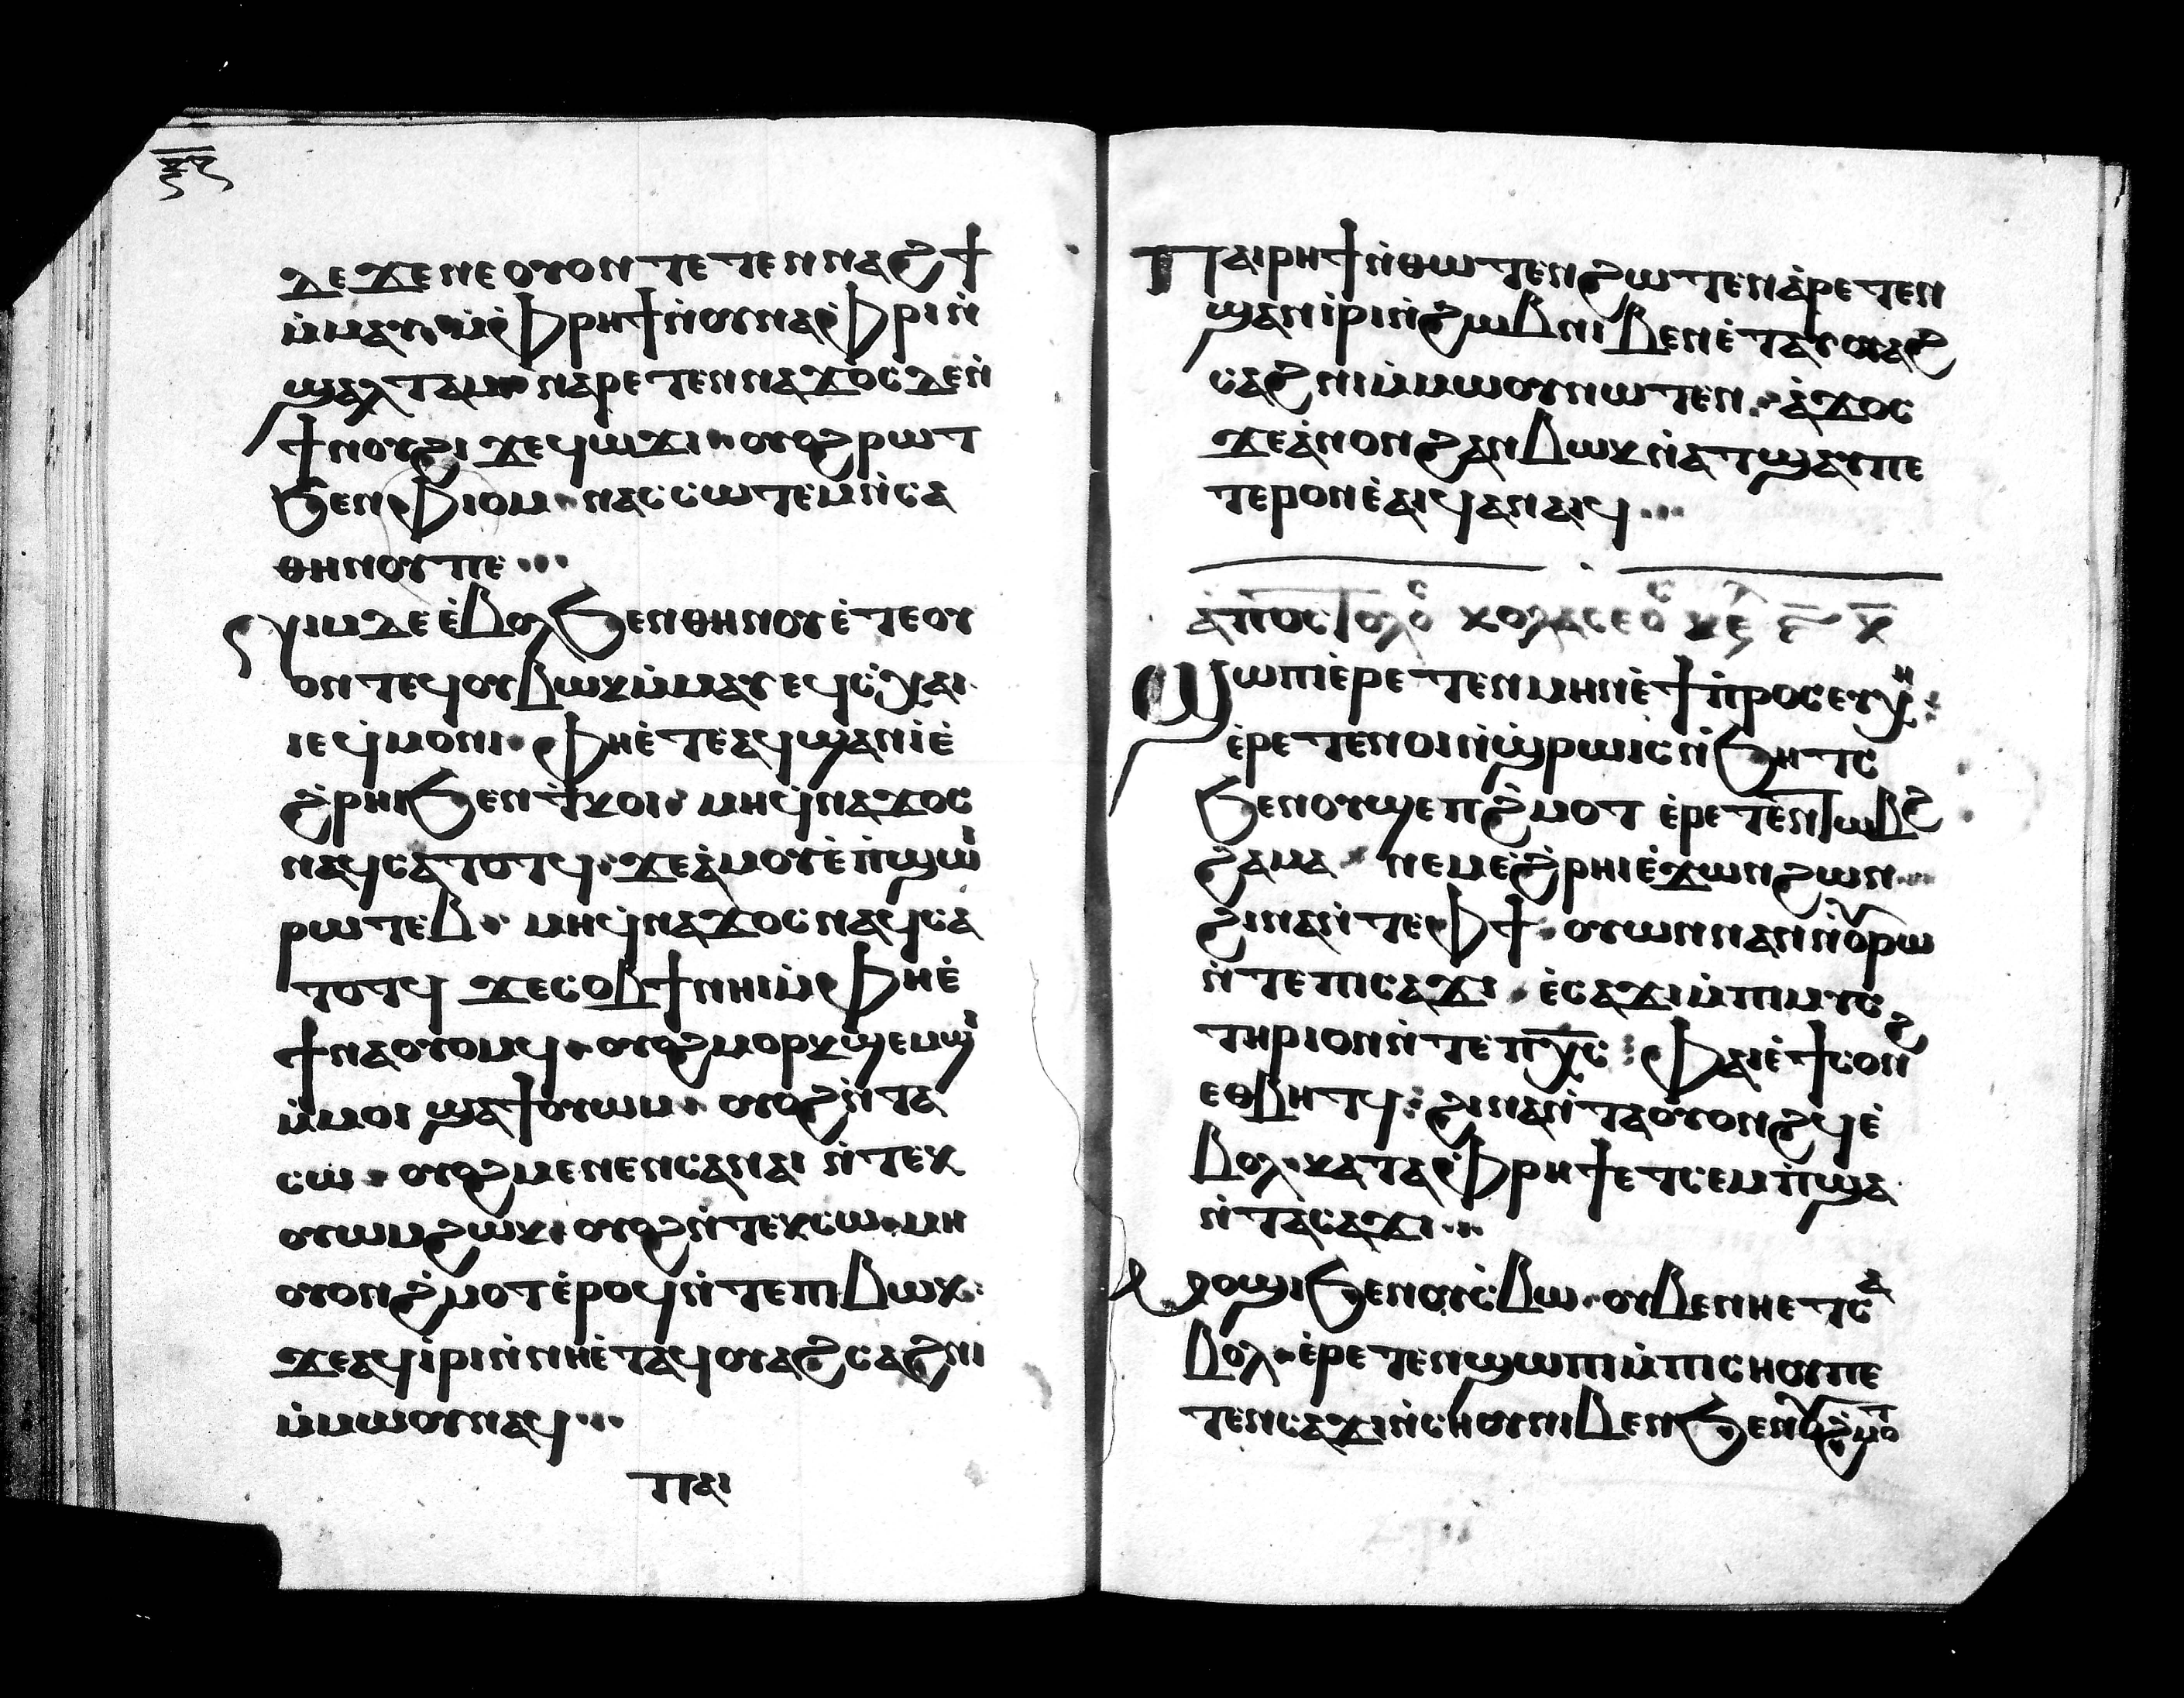 ⲇⲉ ϫⲉ ⲛⲉ ⲟⲩⲟⲛ ⲧⲉⲧⲉⲛ ⲛⲁϩϯ
ⲙ̀ⲙⲁⲩ ⲙ̀ⲫⲣⲏϯ ⲛ̀ⲟⲩⲛⲁⲫⲣⲓ ⲛ̀
ϣⲁⲗⲧⲁⲙ ⲛⲁⲣⲉⲧⲉⲛⲛⲁϫⲟⲥ ⲇⲉ ⲛ̀
ϯⲛⲟⲩϩⲓ ϫⲉ ϥⲱϫⲓ ⲟⲩⲟϩ ⲣⲱⲧ
ϧⲉⲛ ⲫⲓⲟⲙ ⲛⲁⲥⲥⲱⲧⲉⲙ ⲛ̀ⲥⲁ
ⲑⲏⲛⲟⲩ ⲡⲉ
ⲛⲓⲙ ⲇⲉ ⲉ̀ⲃⲟⲗ ϧⲉⲛ ⲑⲏⲛⲟⲩ ⲉ̀ⲧⲉ ⲟⲩ
ⲟⲛⲧⲉϥ ⲟⲩⲃⲱⲕ ⲙ̀ⲙⲁⲩ ⲉϥⲥ̀ⲭⲁⲓ
ⲓⲉ ϥ̀ⲙⲟⲛⲓ ⲫⲏ ⲉ̀ⲧⲉ ⲁϥϣⲁⲛⲓ̀ ⲉ̀
ϩ̀ⲣⲏⲓ ϧⲉⲛ ⲧ̀ⲕⲟⲓ ⲙⲏ ϥ̀ⲛⲁϫⲟⲥ
ⲛⲁϥ ⲥⲁⲧⲟⲧϥ ϫⲉ ⲁ̀ⲙⲟⲩ ⲉ̀ⲡ̀ϣⲱⲓ
ⲣⲱⲧⲉⲃ ⲙⲏ ϥ̀ⲛⲁϫⲟⲥ ⲛⲁϥ ⲥⲁ
ⲧⲟⲧϥ ϫⲉ ⲥⲟⲃϯ ⲛⲏⲓ ⲙ̀ⲫⲏ ⲉ̀
ϯⲛⲁⲟⲩⲟⲙϥ ⲟⲩⲟϩ ⲙⲟⲣⲕ ϣⲉⲙϣⲓ
ⲙ̀ⲙⲟⲓ ϣⲁϯⲟⲩⲱⲙ ⲟⲩⲟϩ ⲛ̀ⲧⲁ
ⲥⲱ ⲟⲩⲟϩ ⲙⲉⲛⲉⲛⲥⲁ ⲛⲁⲓ ⲛ̀ⲧⲉⲕ
ⲟⲩⲱⲙ ϩⲱⲕ ⲟⲩⲟϩ ⲛ̀ⲧⲉⲕⲥⲱ ⲙⲏ
ⲟⲩⲟⲛ ϩ̀ⲙⲟⲧ ⲉ̀ⲣⲟϥ ⲛ̀ⲧⲉ ⲡⲓⲃⲱⲕ
ϫⲉ ⲁϥⲓ̀ⲣⲓ ⲛ̀ⲛⲏ ⲉ̀ⲧⲁϥⲟⲩⲁϩⲥⲁϩⲛⲓ
ⲙ̀ⲙⲱⲟⲩ ⲛⲁϥ
ⲡⲁⲓ
ⲡⲁⲓⲣⲏϯ ⲛ̀ⲑⲱⲧⲉⲛ ϩⲱⲧⲉⲛ ⲁ̀ⲣⲉⲧⲉⲛ
ϣⲁⲛⲓ̀ⲣⲓ ⲛ̀ϩⲱⲃ ⲛⲓⲃⲉⲛ ⲉ̀ⲧⲁⲩⲟⲩⲁϩ
ⲥⲁϩⲛⲓ ⲙ̀ⲙⲱⲟⲩ ⲛⲱⲧⲉⲛ ⲁ̀ϫⲟⲥ
ϫⲉ ⲁ̀ⲛⲟⲛ ϩⲁⲛⲃⲱⲕ ⲛ̀ⲁⲧϣⲁⲩ ⲡⲉ
ⲧⲉⲣⲟⲛ ⲉ̀ⲁⲓϥ ⲁⲛⲁⲓϥ
ⲁ̀ⲡⲟⲥⲧⲟⲗⲟ ⲕⲟⲗⲁⲥⲉⲟ
ϣⲱⲡⲓ ⲉ̀ⲣⲉⲧⲉⲛⲙⲏⲛ ⲉ̀ϯⲡ̀ⲣⲟⲥⲉⲩⲭⲏ
ⲉ̀ⲣⲉⲧⲉⲛⲟⲓ ⲛ̀ϣ̀ⲣⲱⲓⲥ ⲛ̀ϧⲏⲧⲥ
ϧⲉⲛ ⲟⲩϣⲉⲡϩ̀ⲙⲟⲧ ⲉ̀ⲣⲉⲧⲉⲛⲧⲱⲃϩ
ϩⲁⲙⲁ ⲛⲉⲙ ⲉ̀ϩ̀ⲣⲏⲓ ⲉ̀ϫⲱⲛ ϩⲱⲛ
ϩⲓⲛⲁ ⲛ̀ⲧⲉ ⲫϯ ⲟⲩⲱⲛ ⲛⲁⲛ ⲛ̀ⲟⲩⲣⲱ
ⲛ̀ⲧⲉ ⲡⲓⲥⲁϫⲓ ⲉ̀ⲥⲁϫⲓ ⲙ̀ⲡⲓⲙⲩⲥ
ⲧⲏⲣⲓⲟⲛ ⲛ̀ⲧⲉ ⲡⲭ̅ⲥ̅ ⲫⲁⲓ ⲉ̀ϯⲥⲟⲛϩ
ⲉⲑⲃⲏⲧϥ ϩⲓⲛⲁ ⲛ̀ⲧⲁⲟⲩⲟⲛϩϥ ⲉ̀
ⲃⲟⲗ ⲕⲁⲧⲁ ⲫⲣⲏϯ ⲉⲧⲥⲉⲙⲡ̀ϣⲁ
ⲛ̀ⲧⲁⲥⲁϫⲓ
ⲙⲟϣⲓ ϧⲉⲛ ⲟⲩⲥ̀ⲃⲱ ⲟⲩⲃⲉ ⲛⲏ ⲉⲧⲥⲁ
ⲃⲟⲗ ⲉ̀ⲣⲉⲧⲉⲛϣⲱⲡ ⲙ̀ⲡⲓⲥⲏⲟⲩ ⲡⲉ
ⲧⲉⲛⲥⲁϫⲓ ⲛ̀ⲥⲏⲟⲩ ⲛⲓⲃⲉⲛ ϧⲉⲛ ⲟⲩϩ̀ⲙⲟⲧ